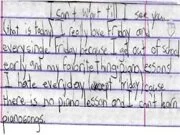 I can't wait till I see you
What is today? I really love friday and
every single friday because I get out of school
early and my favorite thing: piano lesson
I hate everyday except friday cause
there is no piano lesson and I can't learn
piano songs.